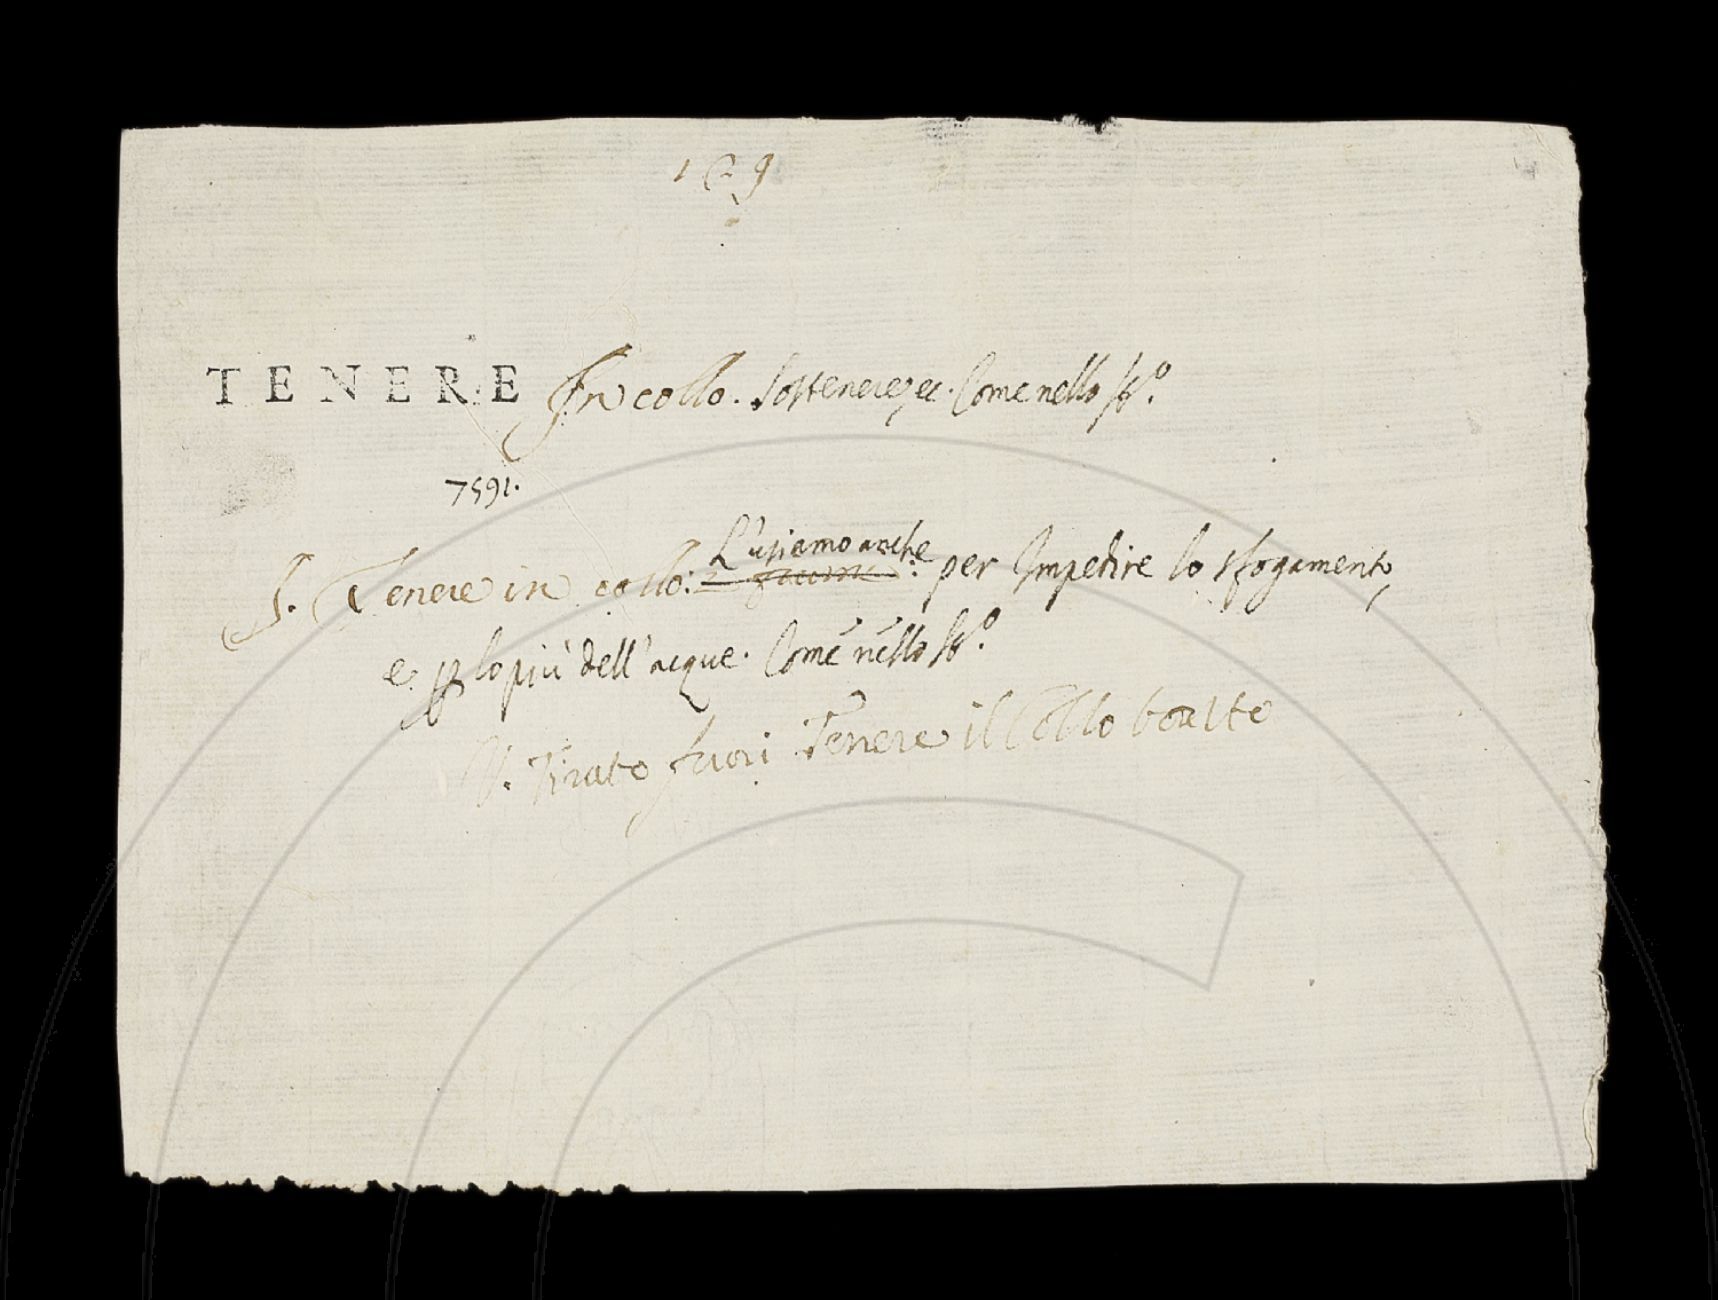 129
TENERE In collo. Sostenere, ec. Come nello st.º
7591.
L'usiamo anche
§. Tenere in collo: per Impedire lo sfogamento,
e p lo più dell'acque. Come nello st.º
V. Tirato fuori Tenere il Collo